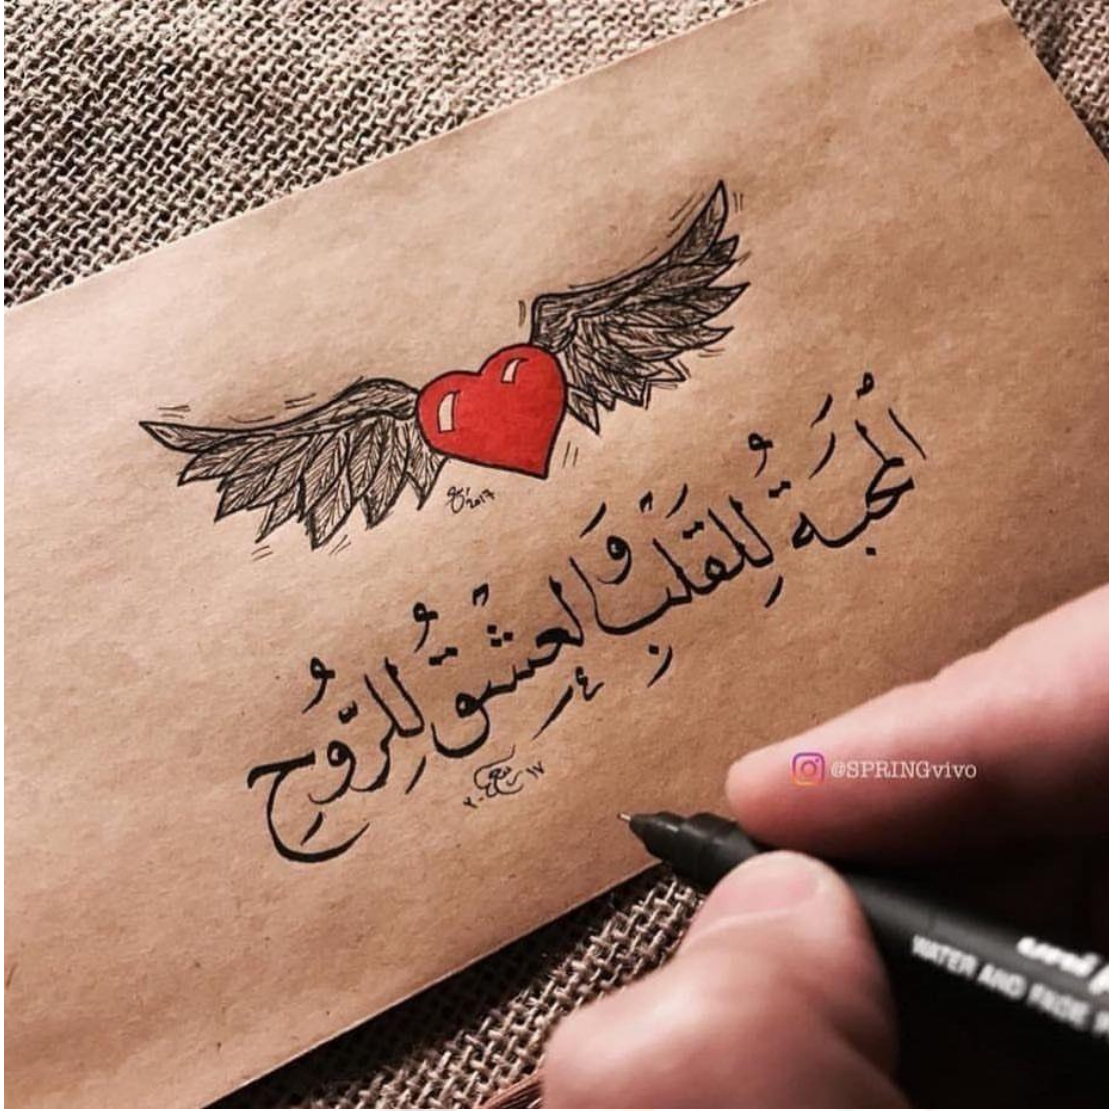 المَحبةُ لِلقَلبِ وَالعِشْقُ لِلرُّوحِ
2017
٢٠١٧
@SPRINGvivo
uni
WATER AND FADE